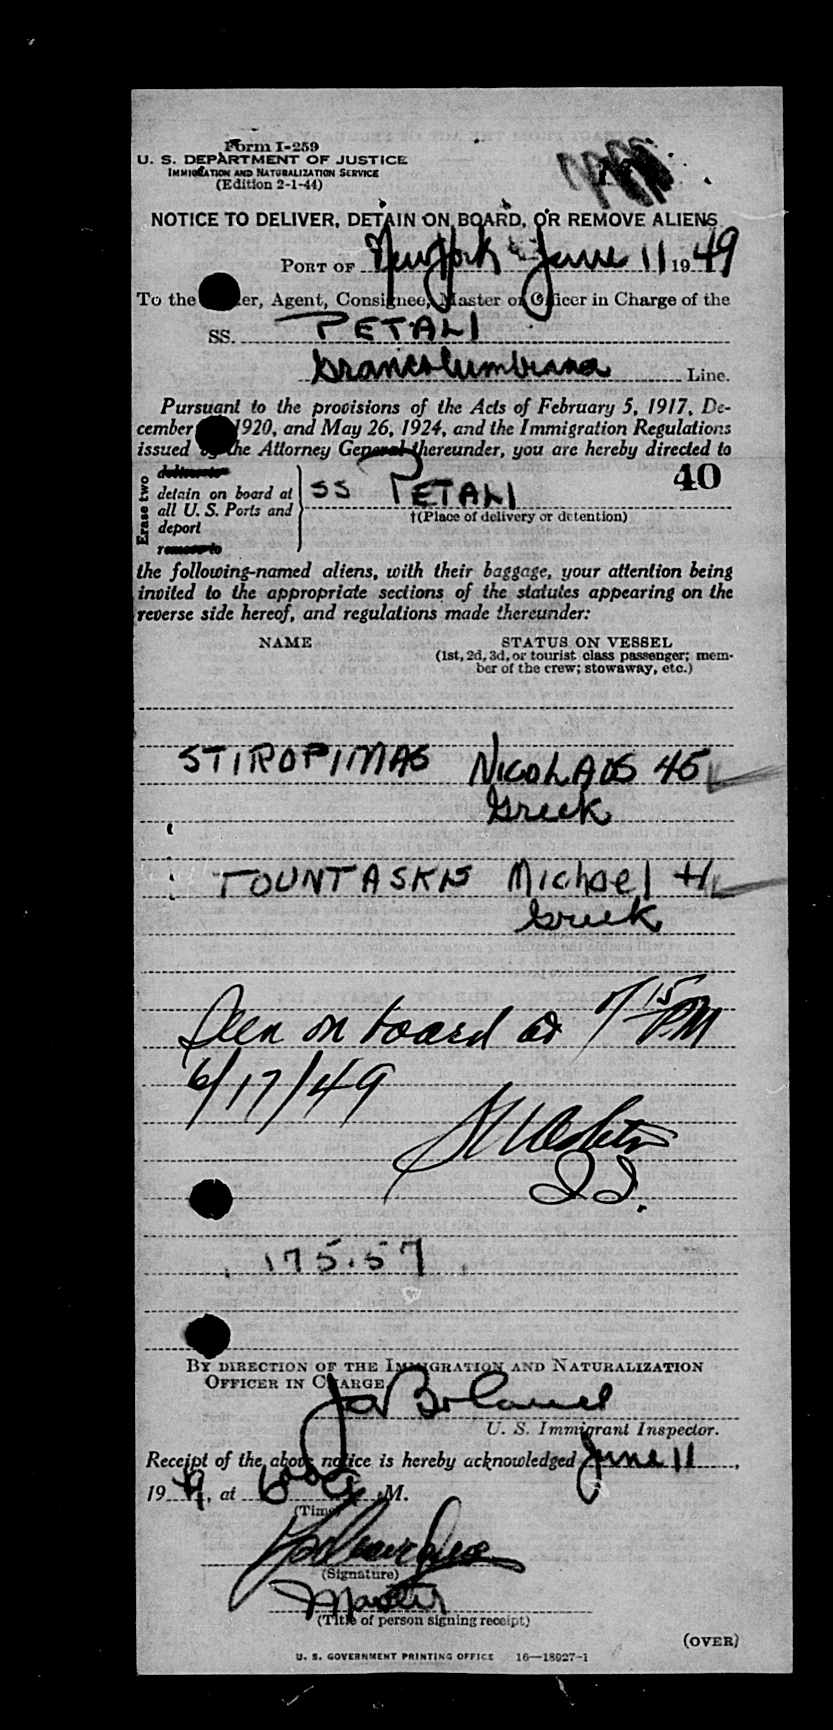 Form I-259
U. S. DEPARTMENT OF JUSTICE
IMMIGRATION AND NATURALIZATION SERVICE
(Edition 2-1-44)
NOTICE TO DELIVER, DETAIN ON BOARD, OR REMOVE ALIENS
PORT OF New York June 11 1949
To the Agent, Consignee, Master or Officer in Charge of the
SS. PETALI
Grancolumbiana Line.
Pursuant to the provisions of the Acts of February 5, 1917, De-
cember 1920, and May 26, 1924, and the Immigration Regulations
issued by the Attorney General thereunder, you are hereby directed to
Erase two
deliver to
detain on board at
all U. S. Ports and
deport
remove to
SS PETALI 40
†(Place of delivery or detention)
the following-named aliens, with their baggage, your attention being
invited to the appropriate sections of the statutes appearing on the
reverse side hereof, and regulations made thereunder:
NAME STATUS ON VESSEL
(1st, 2d, 3d, or tourist class passenger; mem-
ber of the crew; stowaway, etc.)
STIROPIMAS NICOLAOS 45
Greek
TOUNTASKIS Michael
Greek
Seen on board at 7 15 PM
6/17/49
175.57
BY DIRECTION OF THE IMMIGRATION AND NATURALIZATION
OFFICER IN CHARGE
U. S. Immigrant Inspector.
Receipt of the above notice is hereby acknowledged June 11,
1949, at M.
(Time)
(Signature)
Master
(Title of person signing receipt)
(OVER)
U. S. GOVERNMENT PRINTING OFFICE 16—18027-1